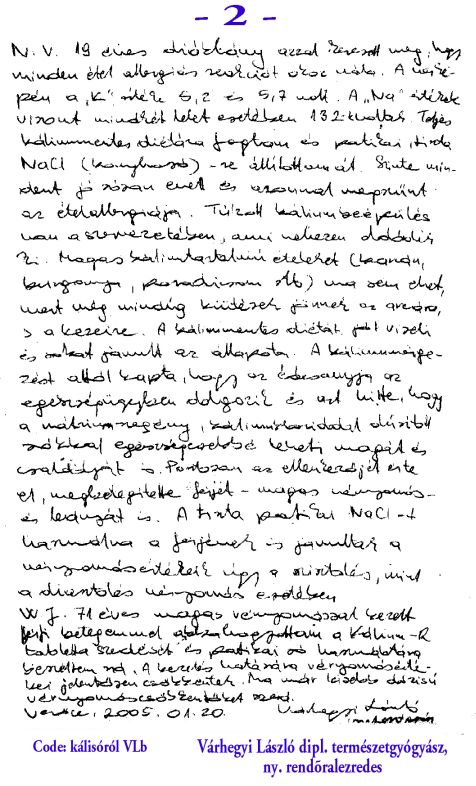 - 2 -
N. V. 19 éves diáklány azzal keresett meg, hogy
minden étel allergiás reakciót okoz nála. A
pén a „K" érték 5,2 és 5,7 volt. A „Na" értékek
viszont mindkét lelet esetében 132 voltak. Teljes
káliummentes diétára fogtam és patikai, tiszta
NaCl (konyhasó) -re állítottam át. Szinte min-
dent jó sósan evett és azonnal megszűnt
az ételallergiája. Túlzott káliumbeépülés
van a szervezetében, ami nehezen oldódik
ki. Magas káliumtartalmú ételeket (banán,
burgonya, paradicsom stb) ma sem ehet,
mert még mindig kiütések jönnek az arcára,
s a kezeire. A káliummentes diétát jól viseli
és sokat javult az állapota. A káliummérge-
zést attól kapta, hogy az édesanyja az
egészségügyben dolgozik és azt hitte, hogy
a nátriumszegény, káliumkloriddal dúsított
sókkal egészségesebbé teheti magát és
családját is. Pontosan az ellenkezőjét érte
el, megbetegítette férjét - magas vérnyomás -
és leányát is. A tiszta patikai NaCl-t
használva a férjének is javultak a
vérnyomásértékeik úgy a szisztolés, mint
a diasztolés vérnyomás esetében
W. J. 71 éves magas vérnyomással kezelt
férfi betegemmel abbahagyattam a Kálium-R
tabletta szedését és patikai só használatára
beszéltem rá. A kezelés hatására vérnyomásérté-
kei jelentősen csökkentek. Ma már kisebb dózisú
vérnyomáscsökkentőket szed.
2005. 01. 20. Várhegyi László
Code: kálisóról VLb
Várhegyi László dipl. természetgyógyász,
ny. rendőralezredes